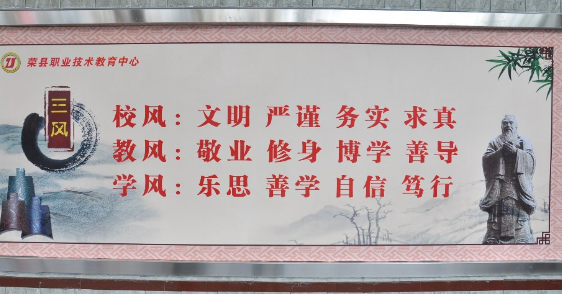 荣县职业技术教育中心
三风
校风：文明 严谨 务实 求真
教风：敬业 修身 博学 善导
学风：乐思 善学 自信 笃行